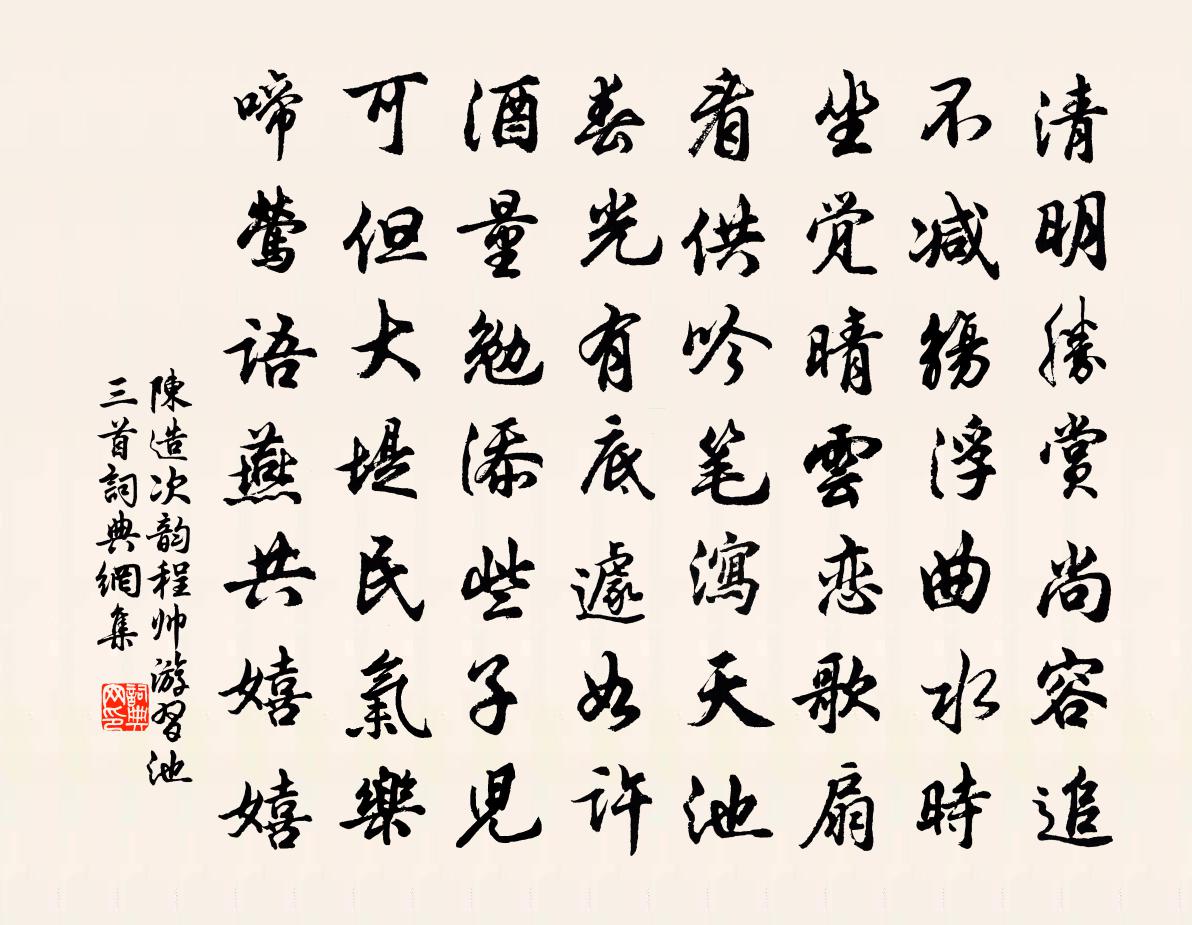 清明勝賞尚容追
不减觴浮曲水時
坐覺晴雲恋歌扇
看供吟笔瀉天池
春光有底遽如許
酒量勉添些子児
可但大堤民氣樂
啼鶯語燕共嬉嬉
陳造次韵程帅游習池
三首詞典網集
詞典
网印